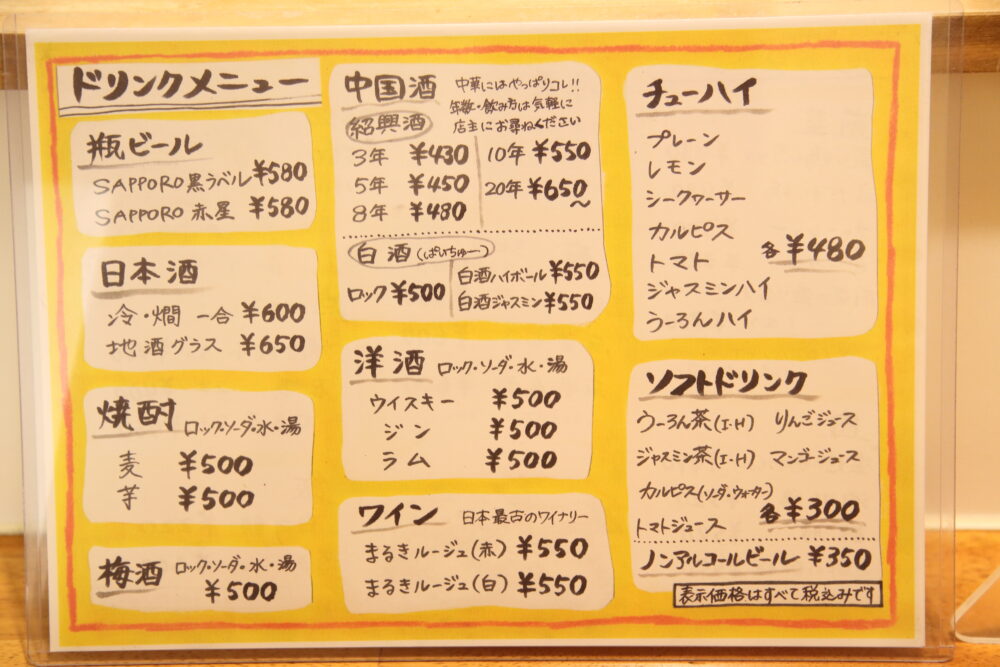 ドリンクメニュー
瓶ビール
SAPPORO黒ラベル ¥580
SAPPORO 赤星 ¥580
日本酒
冷・燗 一合 ¥600
地酒グラス ¥650
焼酎 ロック・ソーダ・水・湯
麦 ¥500
芋 ¥500
梅酒 ロック・ソーダ・水・湯
¥500
中国酒 中華にはやっぱりコレ!!
年数・飲み方は気軽に
店主にお尋ねください
紹興酒
3年 ¥430 10年 ¥550
5年 ¥450 20年 ¥650~
8年 ¥480
白酒(ぱいちゅー)
ロック ¥500
白酒ハイボール ¥550
白酒ジャスミン ¥550
洋酒 ロック・ソーダ・水・湯
ウイスキー ¥500
ジン ¥500
ラム ¥500
ワイン 日本最古のワイナリー
まるきルージュ(赤) ¥550
まるきルージュ(白) ¥550
チューハイ
プレーン
レモン
シークヮーサー
カルピス
トマト 各¥480
ジャスミンハイ
うーろんハイ
ソフトドリンク
うーろん茶(I・H) りんごジュース
ジャスミン茶(I・H) マンゴージュース
カルピス(ソーダ・ウォーター)
トマトジュース 各¥300
ノンアルコールビール ¥350
表示価格はすべて税込みです